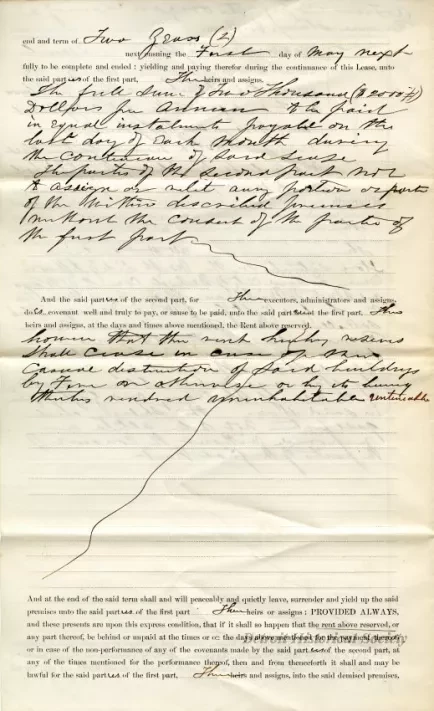 end and term of Two Years (2)
next ensuing the First day of May next
fully to be complete and ended : yielding and paying therefor during the continuance of this Lease, unto
the said parties of the first part, Their heirs and assigns.
The full sum of Two Thousand ($2000
Dollars per Annum to be paid
in equal instalments payable on the
last day of each month during
the continuance of said lease
The parties of the second part not
to assign or relet any portion or parts
of the within described premises
without the consent of the parties of
the first part
And the said parties of the second part, for Their executors, administrators and assigns,
do covenant well and truly to pay, or cause to be paid, unto the said parties of the first part,
heirs and assigns, at the days and times above mentioned, the Rent above reserved.
however that the rent hereby reserved
shall cease in case of the
casual destruction of said buildings
by Fire or otherwise or by its being
thereby rendered uninhabitable untenable
And at the end of the said term shall and will peaceably and quietly leave, surrender and yield up the said
premises unto the said parties of the first part Their heirs or assigns : PROVIDED ALWAYS,
and these presents are upon this express condition, that if it shall so happen that the rent above reserved, or
any part thereof, be behind or unpaid at the times or on the days above mentioned for the payment thereof,
or in case of the non-performance of any of the covenants made by the said parties of the second part, at
any of the times mentioned for the performance thereof, then and from thenceforth it shall and may be
lawful for the said parties of the first part, Their heirs and assigns, into the said demised premises,
Detroit Historical Society